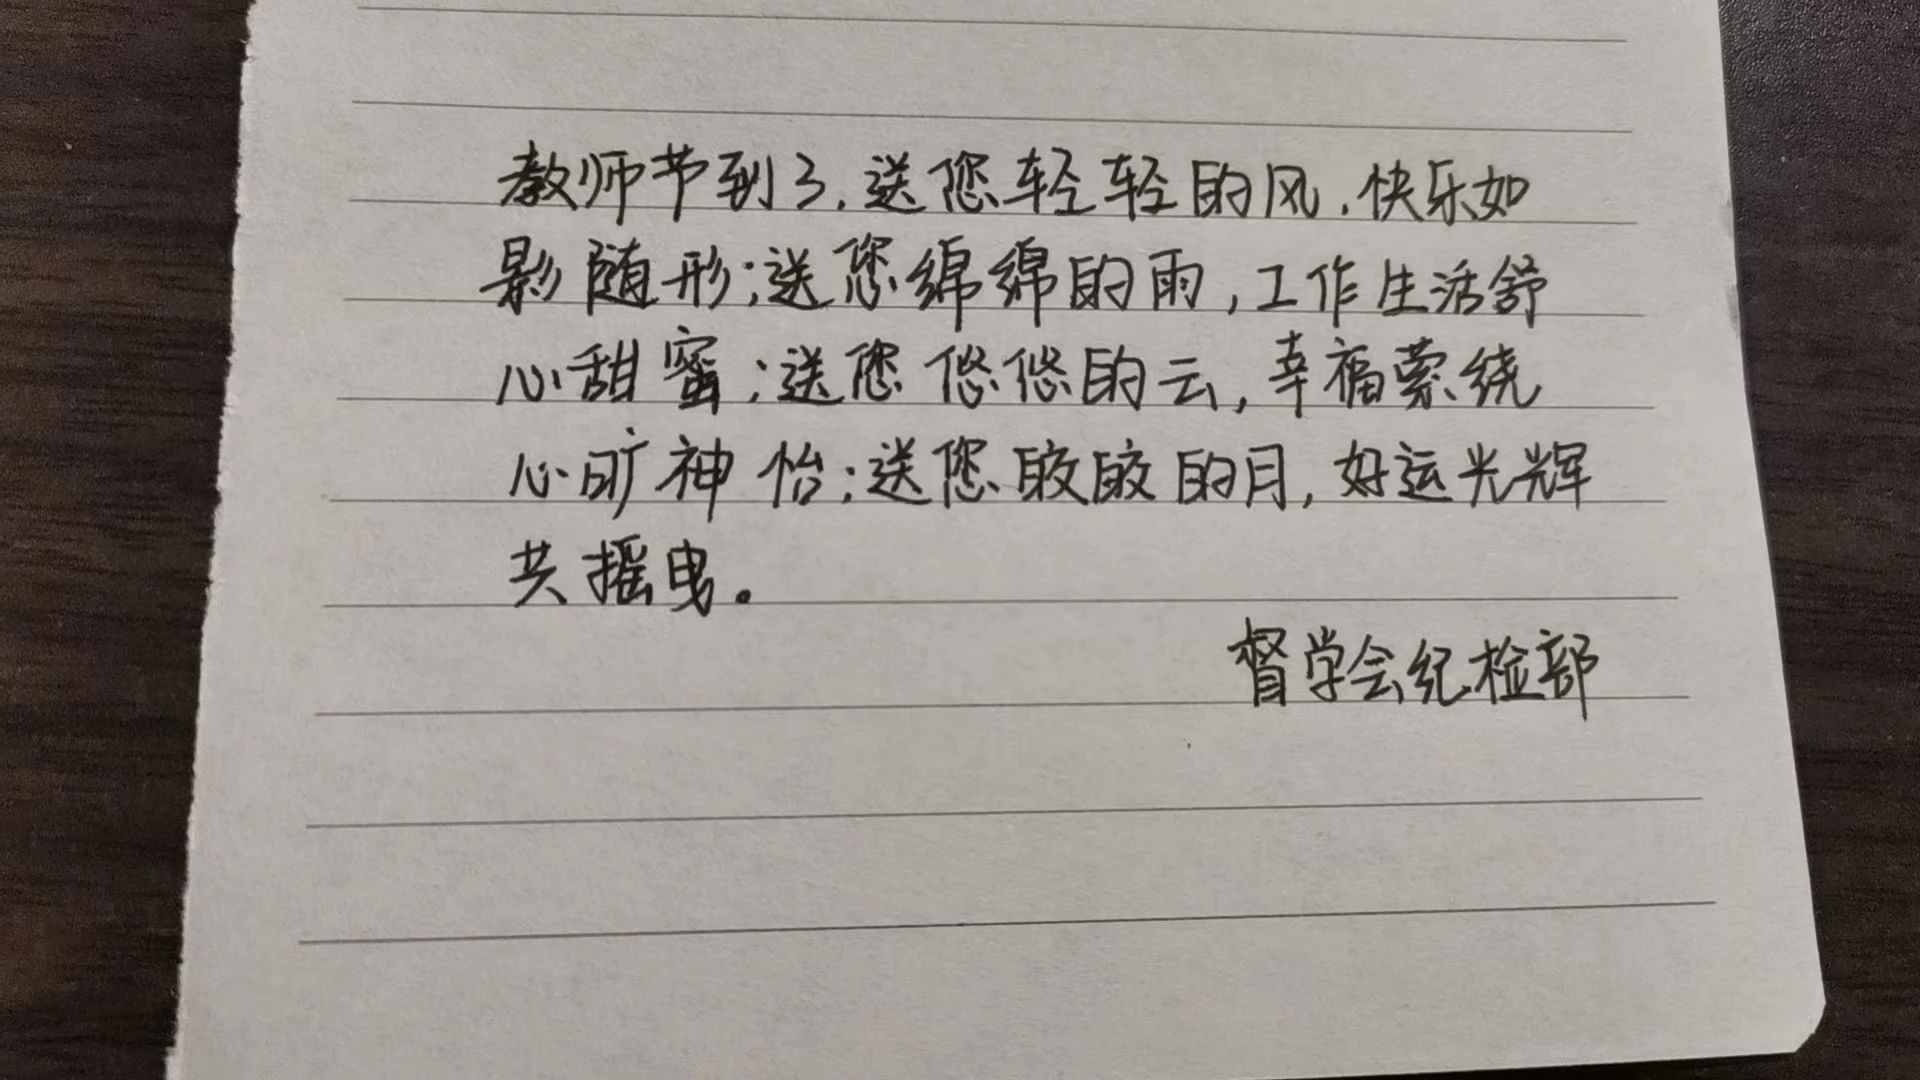 教师节到了，送您轻轻的风，快乐如
影随形；送您绵绵的雨，工作生活舒
心甜蜜；送您悠悠的云，幸福萦绕
心旷神怡；送您皎皎的月，好运光辉
共摇曳。
督学会纪检部